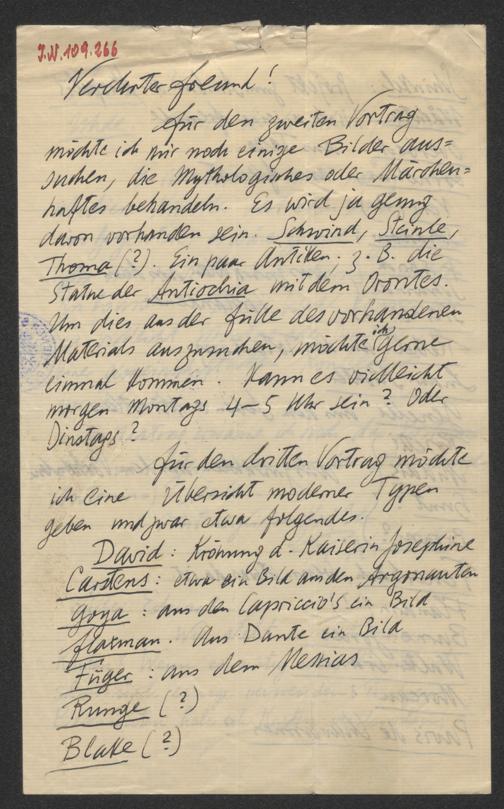 J.N. 109.266
Verehrter Freund!
Für den zweiten Vortrag
möchte ich mir noch einige Bilder aus=
suchen, die Mythologisches oder Märchen=
haftes behandeln. Es wird ja genug
davon vorhanden sein. Schwind, Steinle,
Thoma (?). Ein paar Antiken. z. B. die
Statue der Antiochia mit dem Orontes.
Um dies aus der Fülle des vorhandenen
Materials auszusuchen, möchte ich gerne
einmal kommen. Kann es vielleicht
morgen Montags 4–5 Uhr sein? Oder
Dinstags?
Für den dritten Vortrag möchte
ich eine Übersicht moderner Typen
geben und zwar etwa folgendes.
David: Krönung d. Kaiserin Josephine
Carstens: etwa ein Bild aus den Argonauten
Goya: aus den Capriccio's ein Bild
Flaxman. Aus Dante ein Bild
Füger: aus dem Messias
Runge (?)
Blake (?)